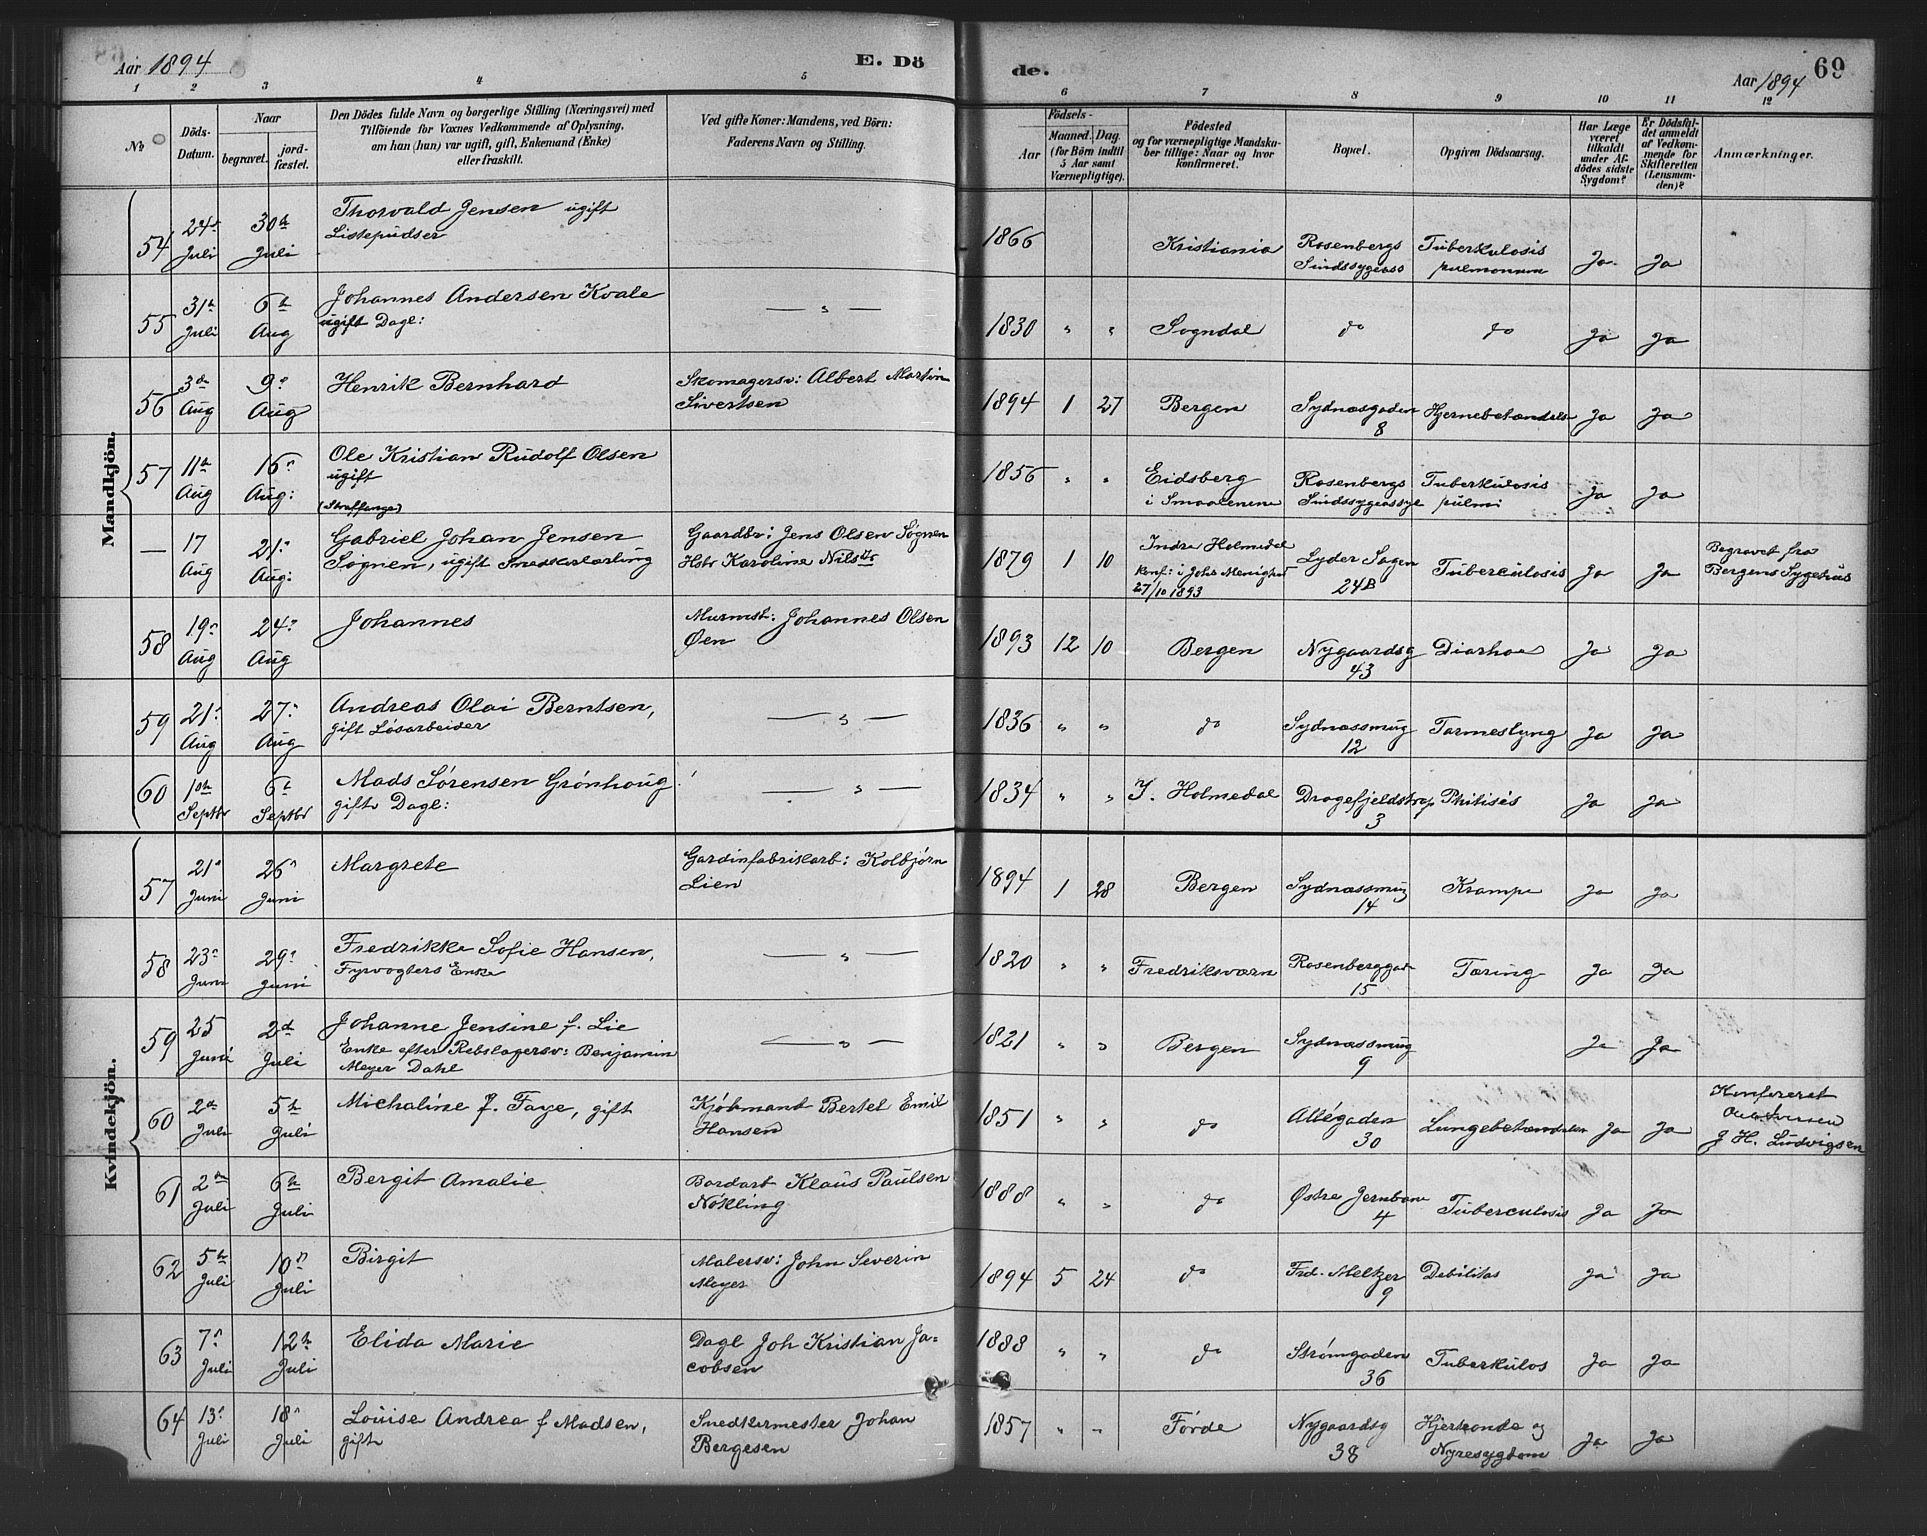 Aar 1894 E. Dö de. Aar 1894 69
1 2 3 4 5 6 7 8 9 10 11 12
No Döds-Datum. Naar begravet. jord-fæstet. Den Dödes fulde Navn og borgerlige Stilling (Næringsvei) med Tilföiende for Voxnes Vedkommende af Oplysning, om han (hun) var ugift, gift, Enkemand (Enke) eller fraskilt. Ved gifte Koner: Mandens, ved Börn: Faderens Navn og Stilling. Födsels- Aar Maaned. Dag. (for Börn indtil 5 Aar samt Værnepligtige). Födested og for værnepligtige Mandskaber tillige: Naar og hvor konfirmeret. Bopæl. Opgiven Dödsaarsag. Har Læge været tilkaldt under Afdödes sidste Sygdom? Er Dödsfaldet anmeldt af Vedkommende for Skifteretten (Lensmanden)? Anmærkninger.
Mandkjön.
54 24de Juli 30te Juli Thorvald Jensen ugift Listepudser 1866 Kristiania Rosenbergs Sindssygeas Tuberkulosis pulmonum Ja Ja
55 31te Juli 6te Aug Johannes Andersen Kvale ugift Dagl: — " — 1830 " " Sogndal do do Ja Ja
56 3de Aug 9" Aug Henrik Bernhard Skomagersv: Albert Martin Sivertsen 1894 1 27 Bergen Sydnæsgaden 8 Hjernebetændelse Ja Ja
57 11te Aug 16" Aug: Ole Kristian Rudolf Olsen ugift (Straffange) 1856 " " Eidsberg i Smaalenene Rosenbergs Sindssygeasyl Tuberkulosis pulmi Ja Ja
— 17 Aug 21" Aug: Gabriel Johan Jensen Søgnen, ugift Smedkerlærling Gaardbr: Jens Olsen Søgnen Hstr Karoline Nilsdtr 1879 1 10 Indre Holmedal Konf: i Johs Menighed 27/10 1893 Lyder Sagen 24B Tuberculosis Ja Ja Begravet fra Bergens Sygehus
58 19" Aug 24" Aug Johannes Murmst: Johannes Olsen Øen 1893 12 10 Bergen Nygaardsg 43 Diarhoe Ja Ja
59 21" Aug 27" Aug Andreas Olai Berntsen, gift Løsarbeider — " — 1836 " " do Sydnæssmug 12 Tarmeslyng Ja Ja
60 1ste Septbr 6te Septbr Mads Sørensen Grønhoug gift Dagl: — " — 1834 " " Y. Holmedal Dragefjeldstrap 3 Phitisis Ja Ja
Kvindekjön.
57 21" Juni 26" Juni Margrete Gardinfabrikarb: Kolbjørn Lien 1894 1 28 Bergen Sydnæssmug 14 Krampe Ja Ja
58 23" Juni 29" Juni Fredrikke Sofie Hansen, Fyrvogters Enke — " — 1820 " " Fredriksværn Rosenberggad 15 Tæring Ja Ja
59 25 Juni 2d Juli Johanne Jensine f. Lie Enke efter Rebslagersv: Benjamin Meyer Dahl — " — 1821 " " Bergen Sydnæssmug 9 Ja Ja
60 2de Juli 5te Juli Michaline f. Faye, gift Kjøbmand Bertel Emil Hansen 1851 " " do Allégaden 30 Lungebetændelse Ja Ja Konfereret J H. Ludvigsen
61 2den Juli 6te Juli Bergit Amalie Bordarb Klaus Paulsen Nøkling 1888 " " do Østre Jernbane 4 Tuberculosis Ja Ja
62 5te Juli 10" Juli Birgit Malersv: John Severin Meyer 1894 5 24 do Frd. Meltzer 9 Debilitas Ja Ja
63 7" Juli 12te Juli Elida Marie Dagl Joh Kristian Ja=cobsen 1888 " " do Strømgaden 36 Tuberkulos Ja Ja
64 13" Juli 18" Juli Louise Andrea f Madsen, gift Snedkermester Johan Bergesen 1857 " " Førde Nygaardsg 38 Hjerteonde og Nyresygdom Ja Ja